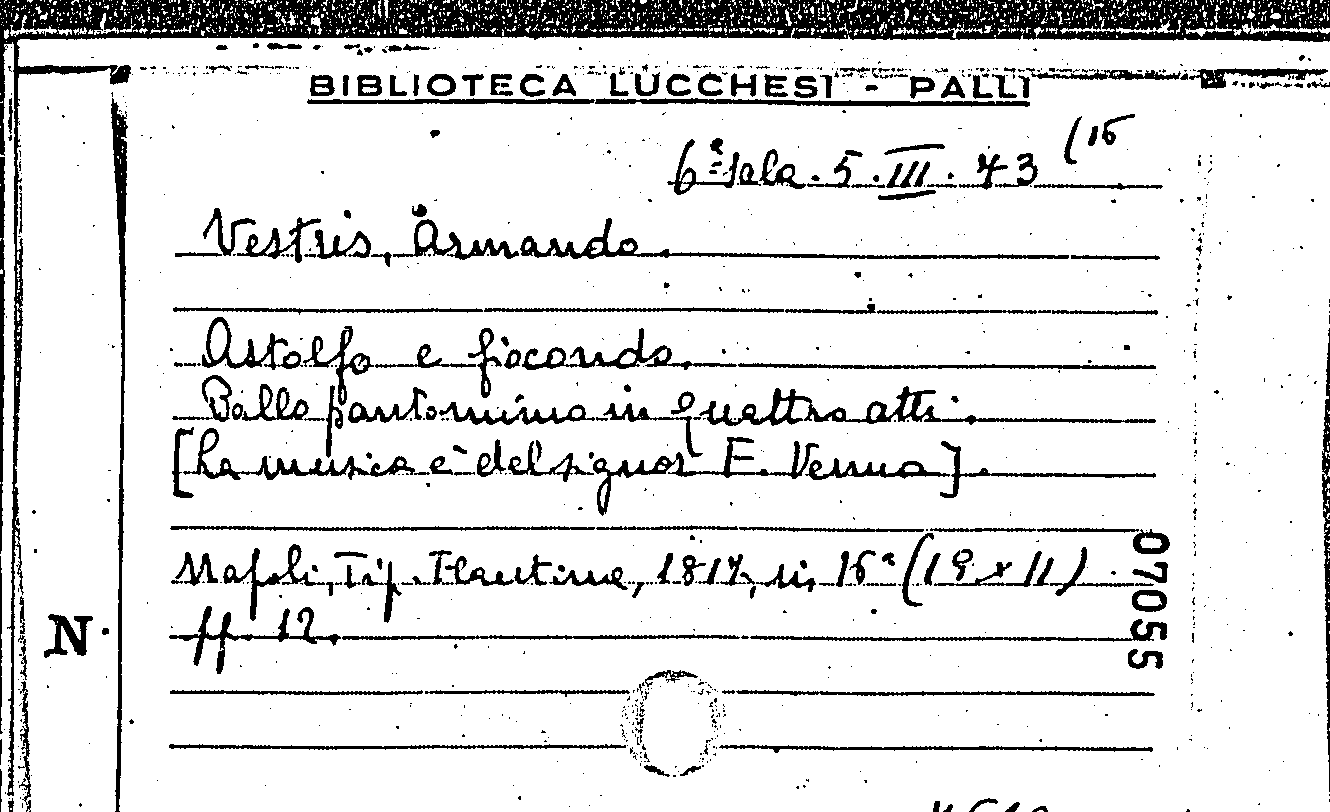 BIBLIOTECA LUCCHESI - PALLI
6ª Sala. 5. III. 43 (15
Vestris, Armando.
Astolfo e Giocondo.
Ballo pantomimo in quattro atti.
[La musica è del signor F. Venua].
Napoli, Tip. Flautina, 1817, in 16° (19 x 11).
pp. 12.
07055
N.